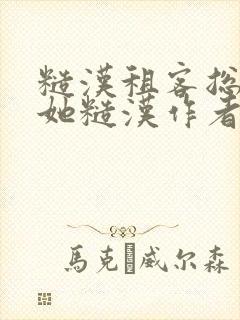 糙漢租客總
她糙漢作者
馬克�威尔森